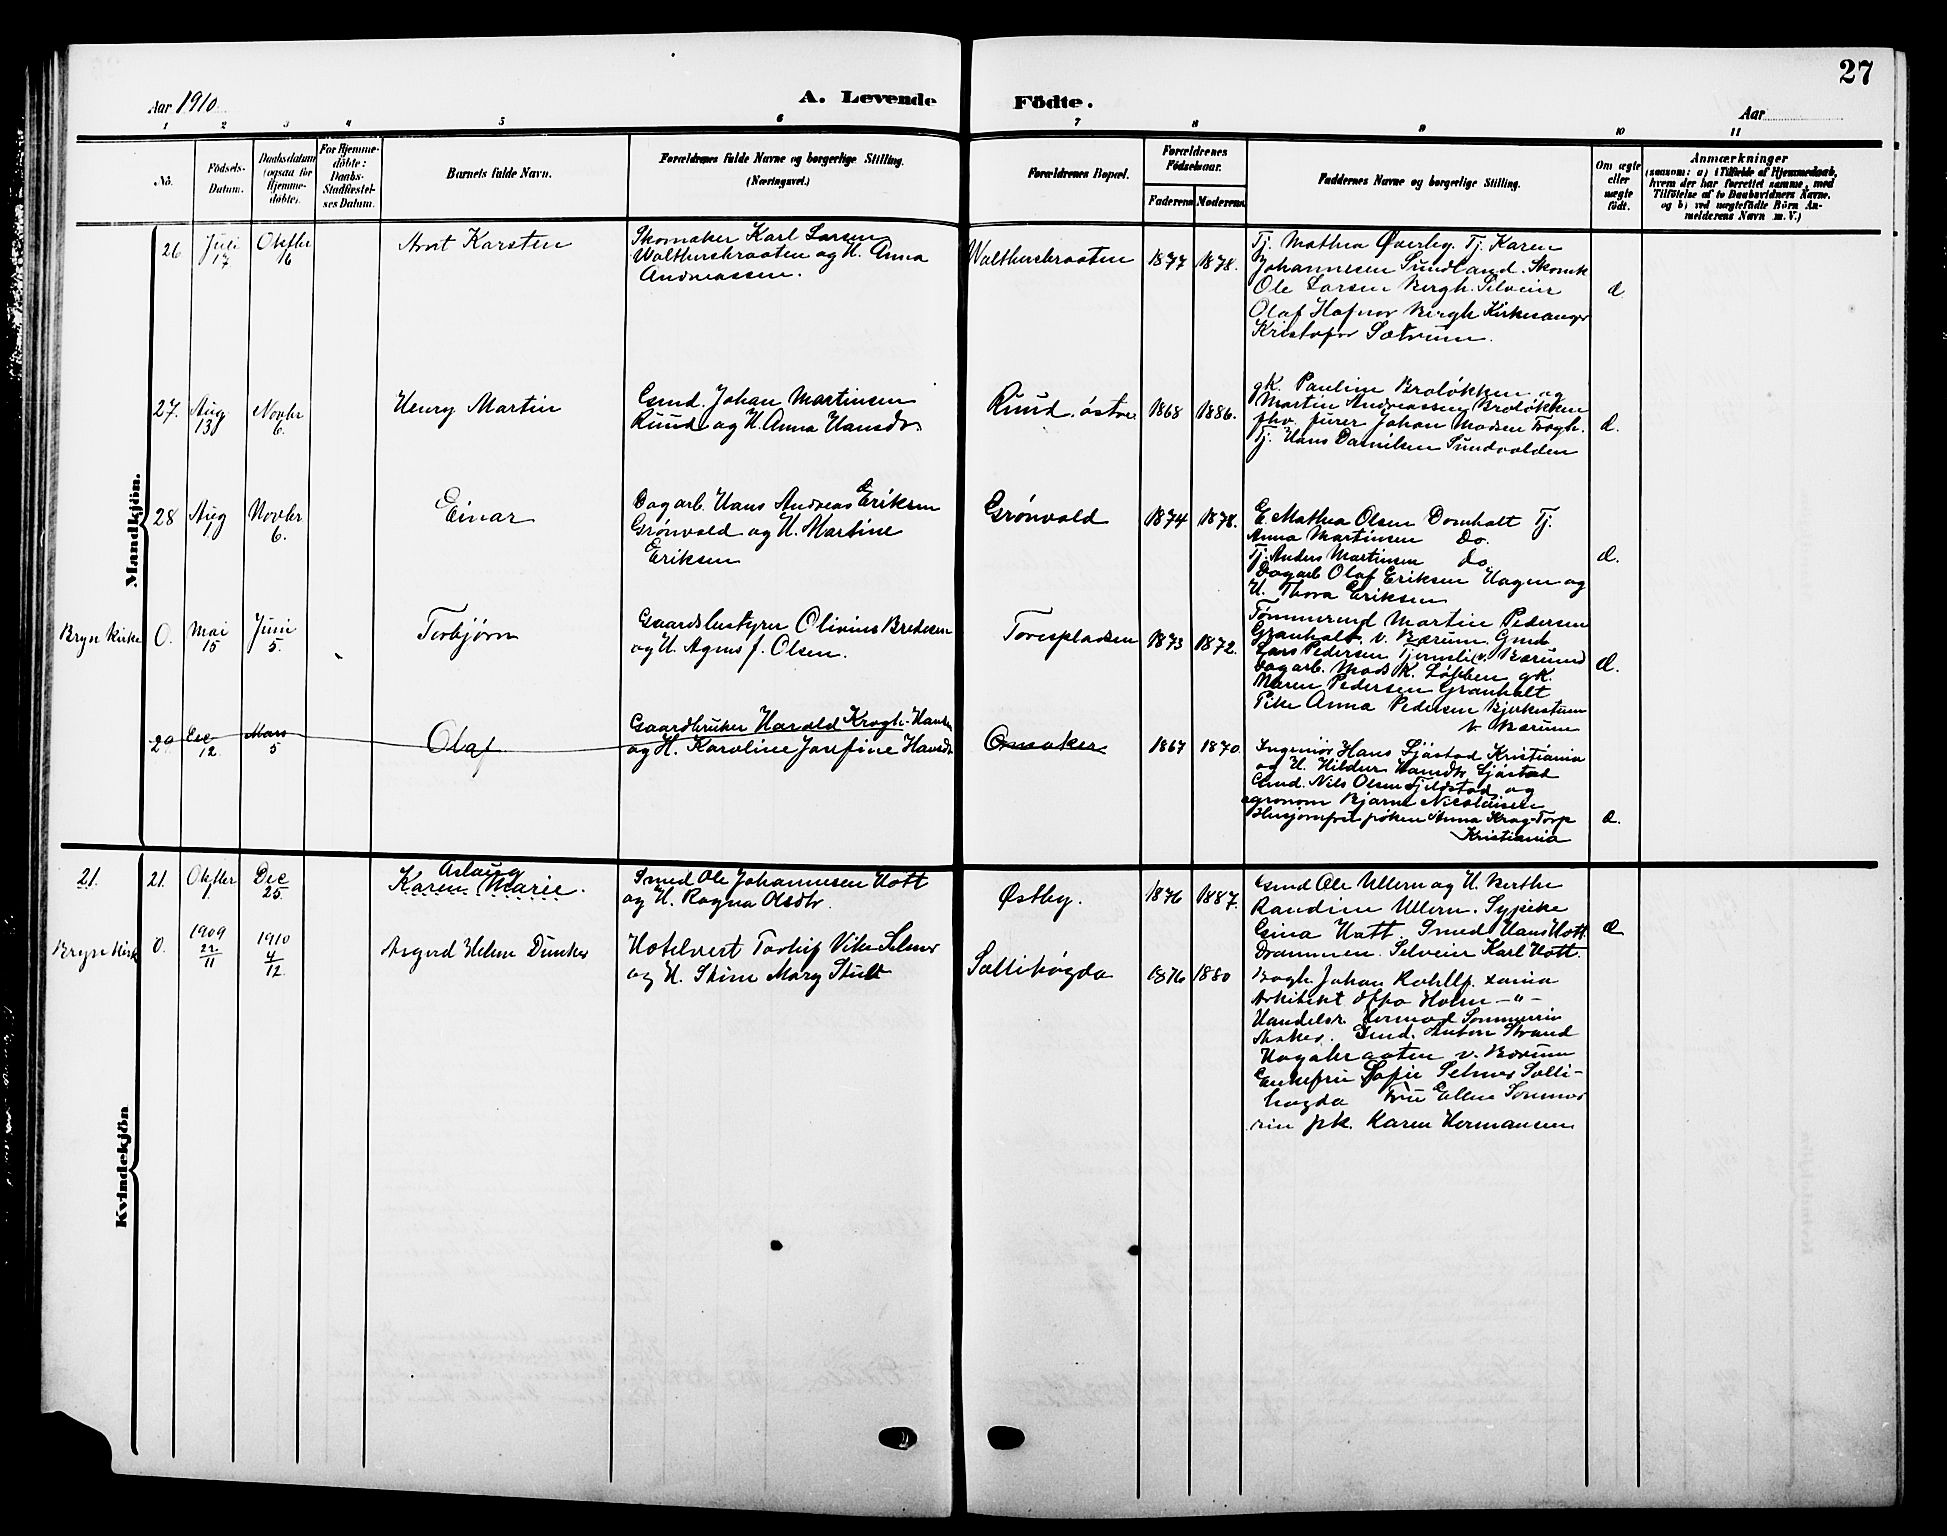 27
Aar 1910
A. Levende Födte.
Aar
1 2 3 4 5 6 7 8 9 10 11
No.
Födsels-Datum.
Daabsdatum (ogsaa for Hjemme-döbte).
For Hjemme-döbte: Daabs-Stadfæstel-ses Datum.
Barnets fulde Navn.
Forældrenes fulde Navne og borgerlige Stilling. (Næringsvei.)
Forældrenes Bopæl.
Forældrenes Födselsaar.
Faderens Moderens
Faddernes Navne og borgerlige Stilling.
Om ægte eller uægte födt.
Anmærkninger
(saasom: a) i Tilfælde af Hjemmedaab, hvem der har forrettet samme, med Tilföielse af to Daabsvidners Navne. og b) ved uægtefödte Börn An-melderens Navn m. V.)
Mandkjön.
26 Juli 17 Oktbr 6
Arnt Karsten
Skomaker Karl Larsen
Walthersbraaten og H. Anna
Andreassen.
Walthersbraaten 1877 1878.
Tj. Mathea Øverby. Tj. Karen
Johannesen Sundland. Skomk
Ole Larsen Bergh. Selveier
Olaf Hafnor Bergh Kirkesanger
Kristofor Sætrum.
Æ.
27. Aug. 13 Novbr 6.
Henry Martin
Gmd. Johan Martinsen
Ruud og H. Anna Hansdr.
Ruud, østre 1868 1886.
gK. Pauline Braløkken og
Martin Andreassen Braløkken
fhv. furer Johan Madsen Trøgh.
Tj. Hans Danielsen Sundvolden
Æ.
28 Aug Novbr 6.
Einar
Dagarb. Hans Andreas Eriksen
Grønvold og H. Martine
Eriksen
Grønvold 1874 1878.
E. Mathea Olsen Domholt Tj.
Anna Martinsen Do.
Tj. Anders Martinsen do
Dagarb Olaf Eriksen Hagen og
H. Thora Eriksen
Æ.
Bryn Kirke 0. Mai 15 Juni 5.
Torbjørn
Gaardsbestyrer Olivius Bredesen
og H. Agnes f. Olsen.
Torespladsen 1873 1872.
Tømmermd Martin Pedersen
Granholt. v. Bærum. Gmd.
Lars Pedersen Tjernsli v. Bærum
Dagarb. Mads K. Løkken gK.
Maren Pedersen Granholt
Pike Anna Pedersen Bjerkestuen
v. Bærum
Æ.
29 Dec 12 Mars 5
Olaf
Gaardbruker Harald Krogh-Hansen
og H. Karoline Josefine Hansdr
Onsaker 1867 1870.
Ingeniør Hans Sjåstad Kristiania
og H. Hildur Hansdr Sjåstad
Gmd. Nils Olsen Fjeldstad og
agronom Bjarne Nicolaisen
frøken Anna Krag-Torp
Kristiania
Æ.
Kvindekjön
21. 21. Oktbr 1. Dec 25.
Aslaug
Karen Marie.
Smed Ole Johannesen Hott
og H. Ragna Olsdtr.
Østby. 1876 1887.
Gmd Ole Ullern og H. Berthe
Randine Ullern. Sypike
Gina Hott. Smed Hans Hott
Drammen. Selveier Karl Hott.
Æ
Bryn Kirk 0. 1909 22/11 1910 4/12.
Asgerd Helene Duncker
Hotelvert Torleif Vibe Selmer
og H. Stine Mary Stub
Sollihøgda 1876 1880
Bogh. Johan Rohllf. xania
Arkitekt Olfo Holm —"—
Handelsr. Hermod Sommerin
Asker. Gmd. Anton Strand
Hagabraaten v. Bærum
Enkefru Sofie Selmer Solli-
høgda Fru Ellen Sommer
rin pk. Karen Hermansen